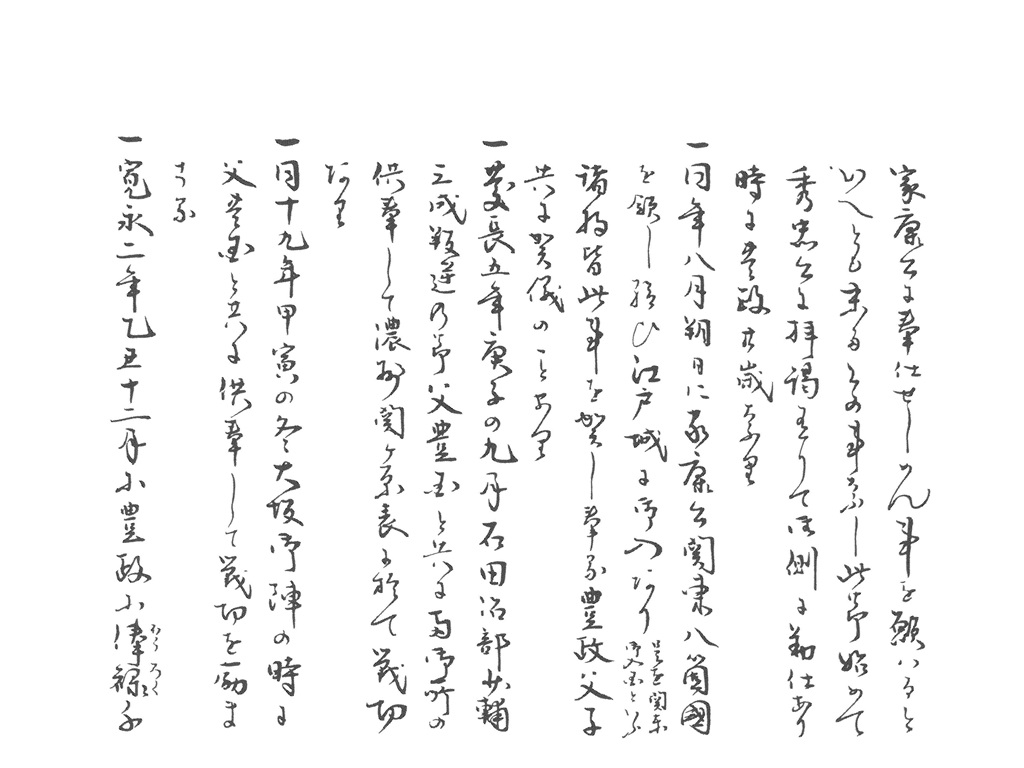 家康公に奉仕せしめん事を願はると
いへとも未るゝの事なし此節始めて
秀忠公に拝謁をとりて御側に勤仕あり
時に豊政廿歳なり
一同年八月朔日に家康公関東八箇國
を領し給ひ江戸城に御入あり是を関東御入国といふ
諸将皆此事を賀し奉る豊政父子
共に賀儀のことあり
一慶長五年庚子の九月石田治部少輔
三成叛逆の節父豊国と共に両御所の
供奉して濃州関ヶ原表に於て戦功
あり
一同十九年甲寅の冬大坂御陣の時に
父豊国と共に供奉して戦功を励ま
さる
一寛永二年乙丑十二月小豊政小俸禄ほうろくを